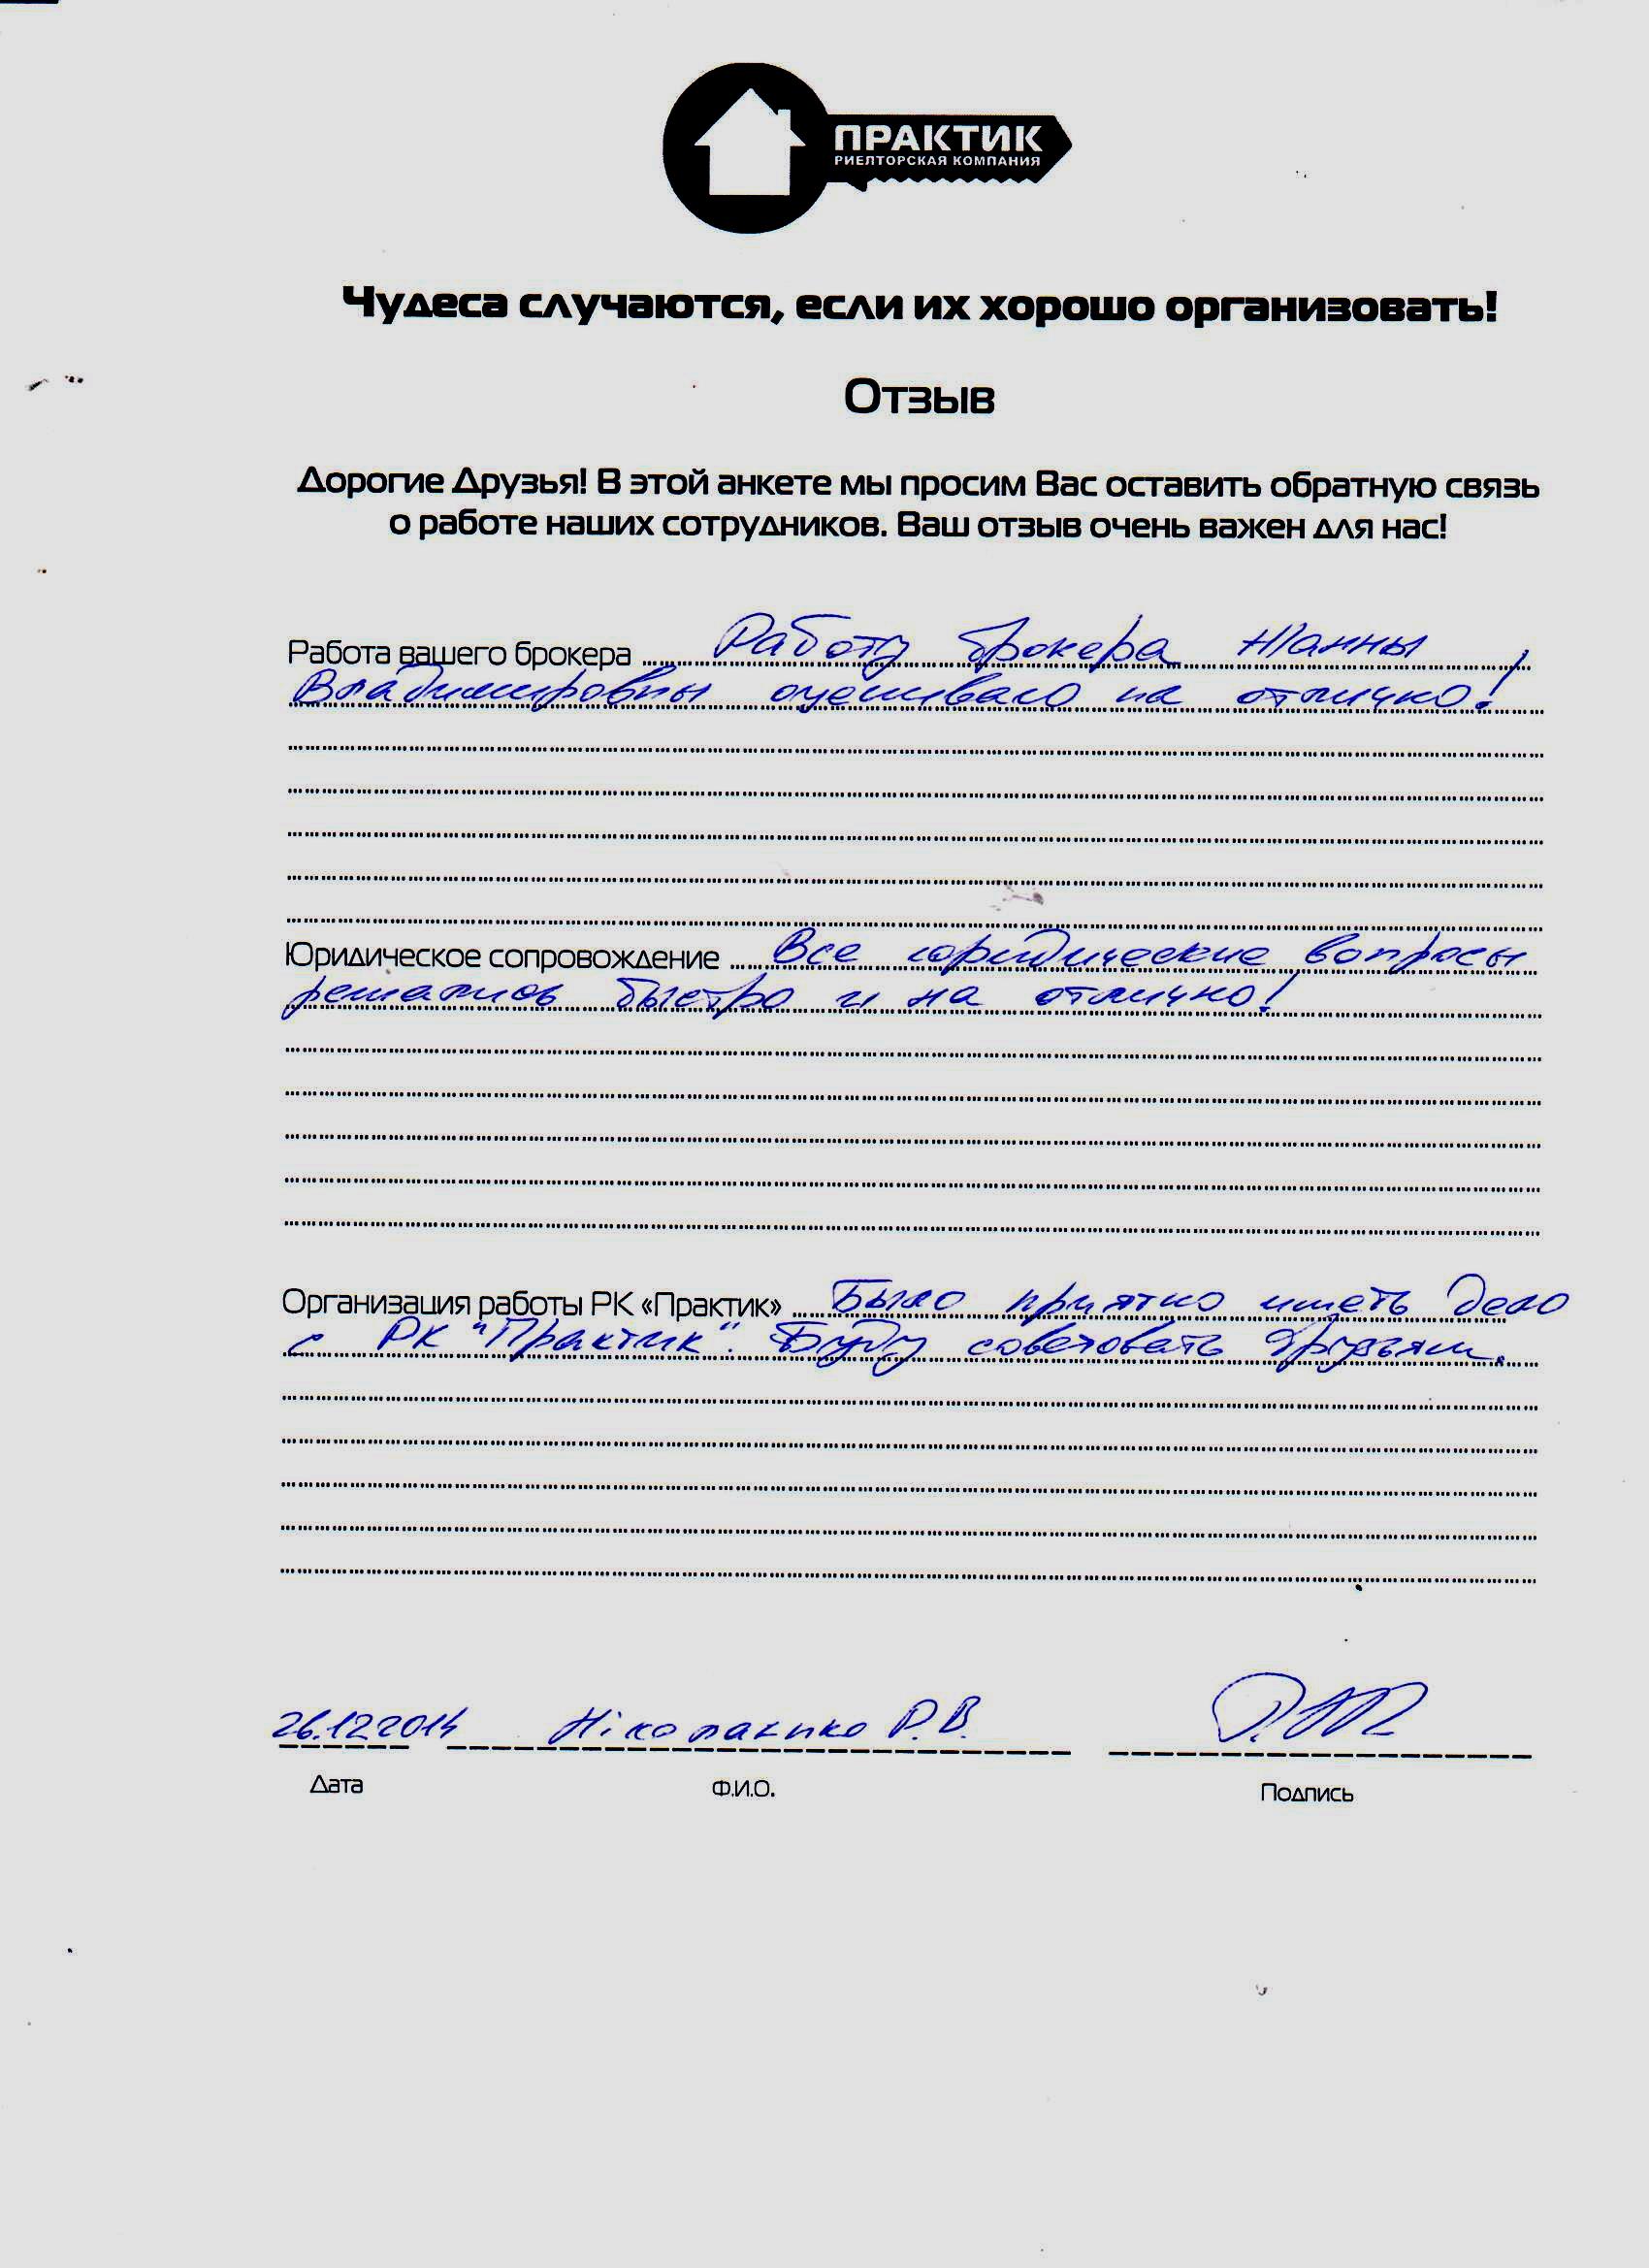 ПРАКТИК
РИЕЛТОРСКАЯ КОМПАНИЯ
Чудеса случаются, если их хорошо организовать!
Отзыв
Дорогие Друзья! В этой анкете мы просим Вас оставить обратную связь
о работе наших сотрудников. Ваш отзыв очень важен для нас!
Работа вашего брокера Работу брокера Жанны
Владимировны оцениваю на отлично!
Юридическое сопровождение Все юридические вопросы
решались быстро и на отлично!
Организация работы РК «Практик» Было приятно иметь дело
с РК "Практик". Буду советовать друзьям.
26.12.2014 Р.В.
Дата Ф.И.О. Подпись